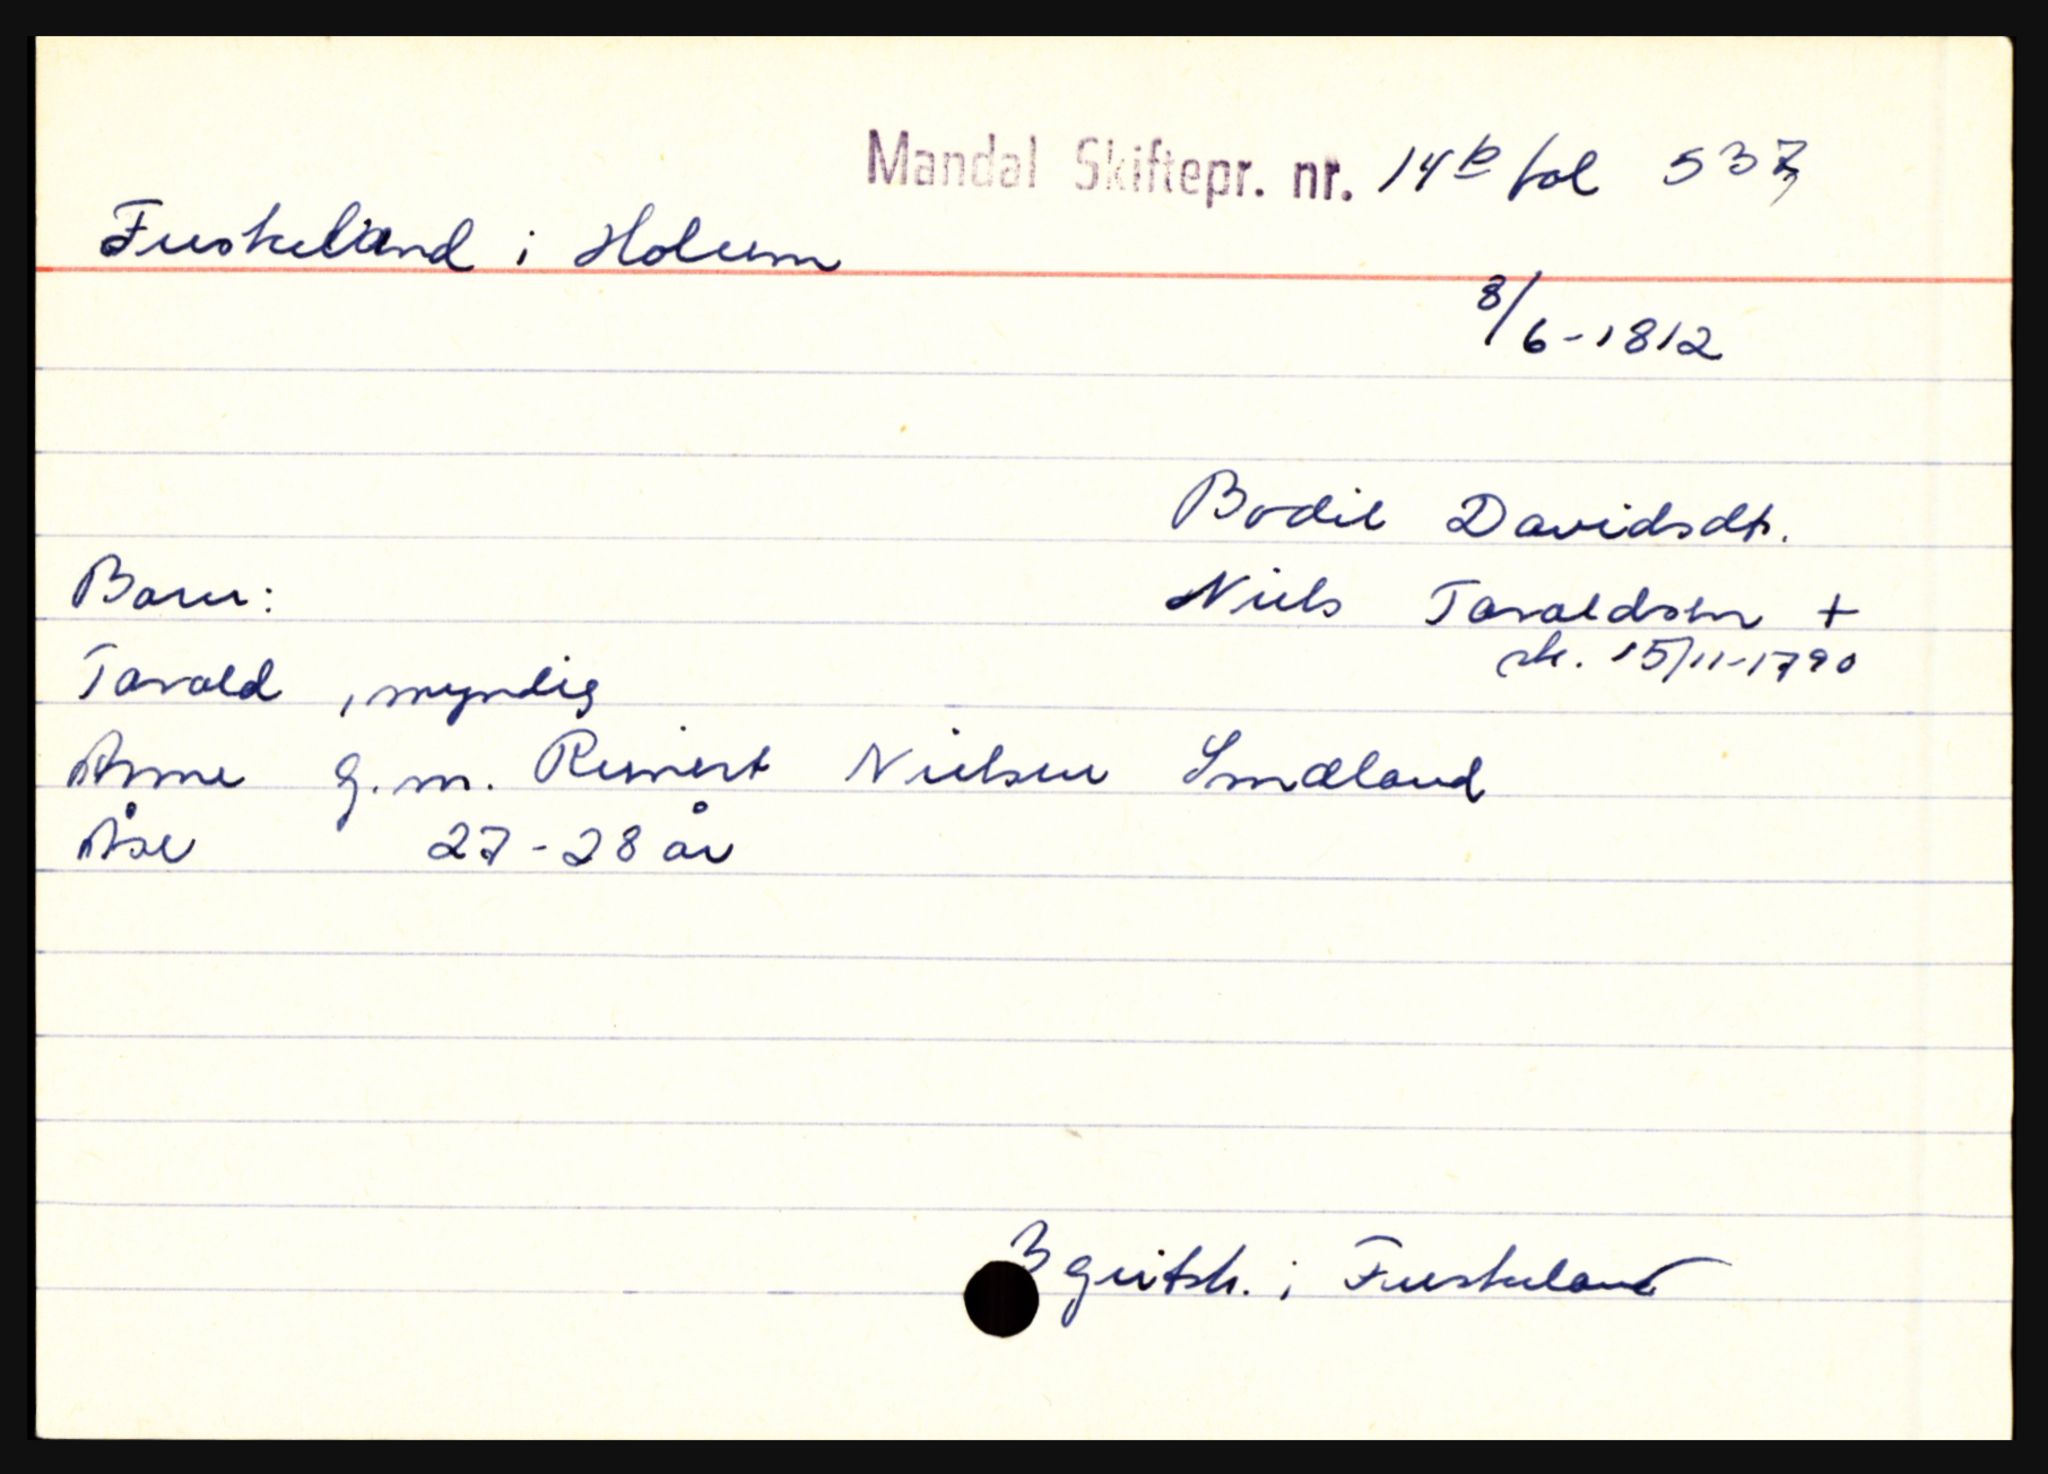 Mandal Skiftepr. nr. 14b fol 537
Fuskeland i Holum
8/6-1812
Bodil Davidsdt.
Barn:
Niels Taraldsen +
sk. 15/11-1790
Tarald , myndig
Anne g.m. Reinert Nielsen Småland
Åse 27-28 år
3 guitsk. i Fuskeland